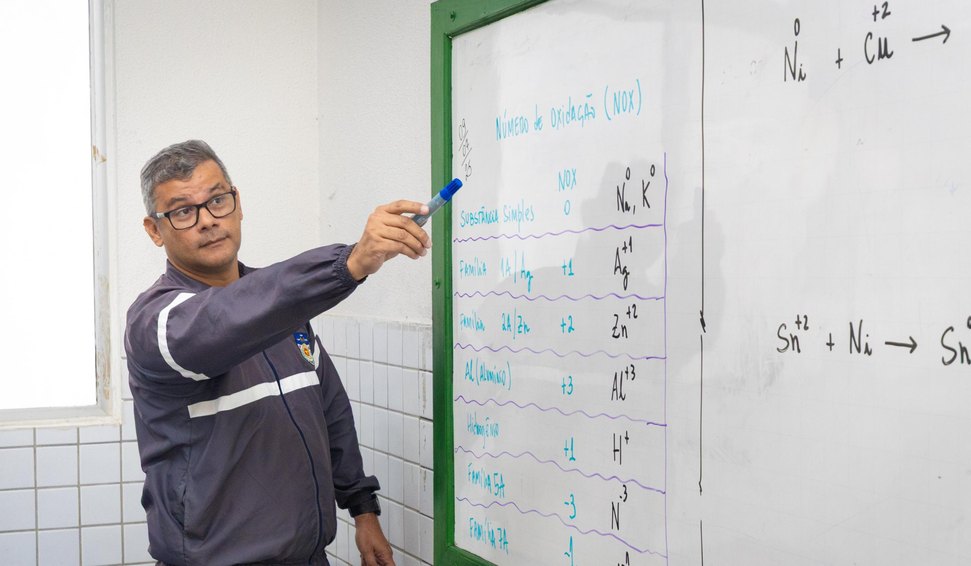 09/07/25
Número de Oxidação (NOX)
NOX
Substância Simples 0 Na⁰, K⁰
Família 1A/Ag +1 Ag⁺¹
Família 2A/Zn +2 Zn⁺²
Al (Alumínio) +3 Al⁺³
Hidrogênio +1 H⁺
Família 5A -3 N⁻³
Família 7A -1
Ni⁰ + Cu⁺² →
Sn⁺² + Ni → Sn⁰